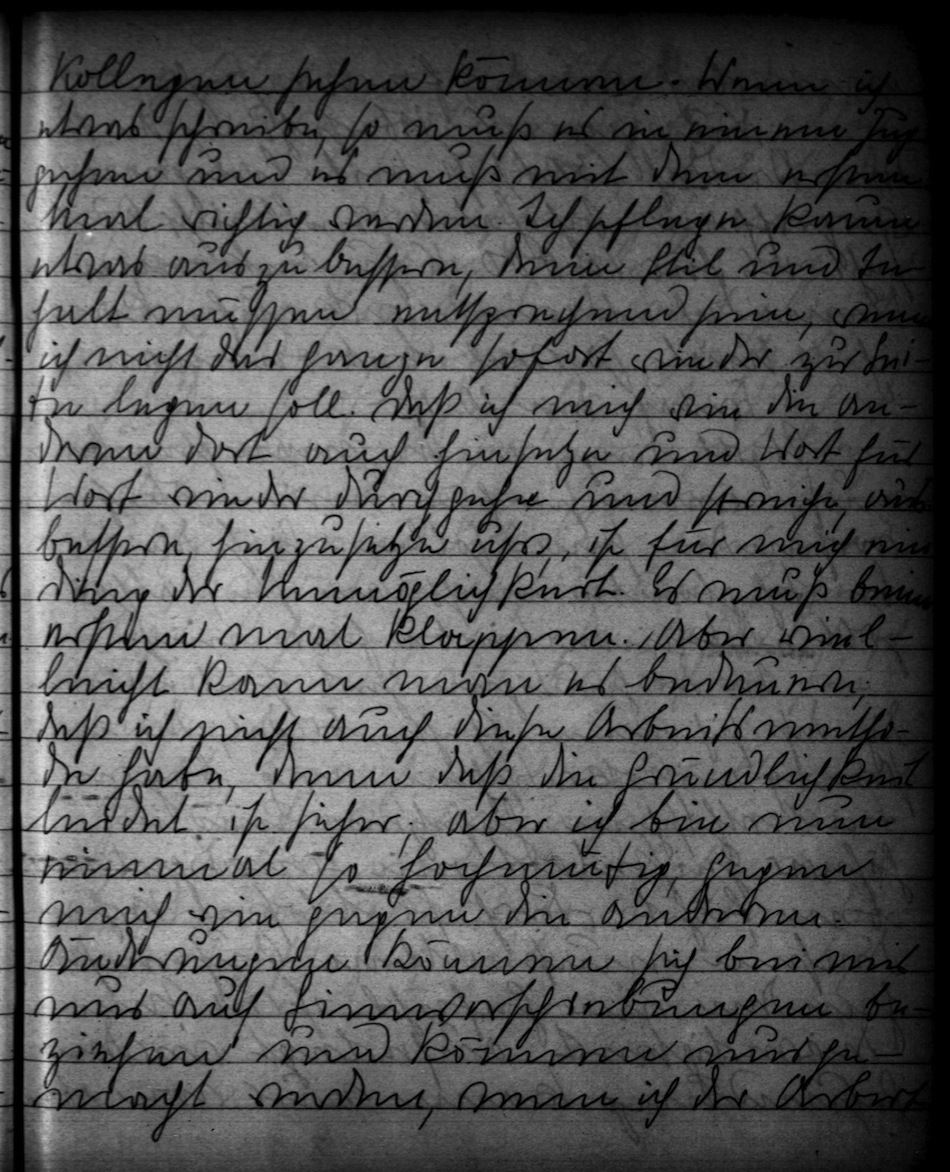 Kollegen sehen können. Wenn ich
etwas schreibe, so muß es in einem Zug
gehen und es muß mit dem ersten
Mal richtig werden. Ich pflege kaum
etwas auszubessern, denn Stil und In-
halt müssen entsprechend sein, wenn
ich nicht das ganze sofort wieder zur Sei-
te legen soll. Daß ich mich wie die an-
deren dort auch hinsetze und Wort für
Wort wieder durchgehe und streiche, aus
bessern, hinzusetze usw, ist für mich ein
Ding der Unmöglichkeit. Es muß beim
ersten mal klappen. Aber viel-
leicht kann man es bedauern,
daß ich nicht auch diese Arbeitsmetho-
de habe, denn daß die Gründlichkeit
leidet ist sicher, aber ich bin nun
einmal so hochmütig, gegen
mich wie gegen die anderen.
Änderungen können sich bei mir
nur auf Sinnverschiebungen be-
ziehen und können nur ge-
macht werden, wenn ich der Arbeit